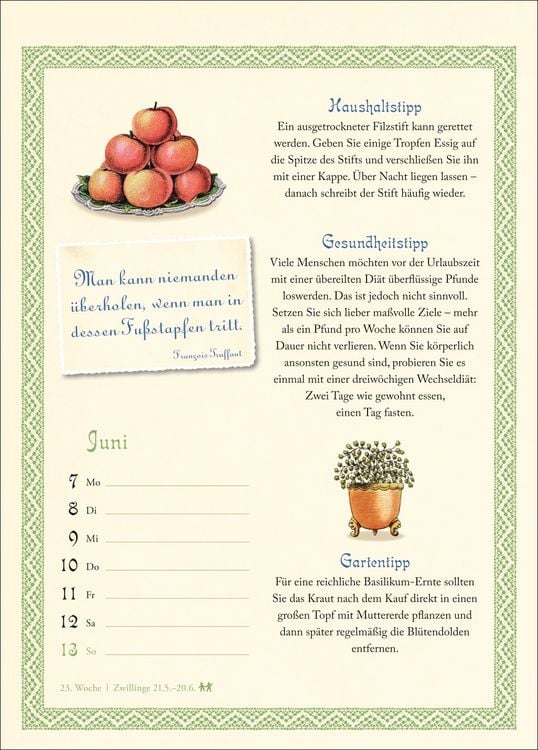 Haushaltstipp
Ein ausgetrockneter Filzstift kann gerettet
werden. Geben Sie einige Tropfen Essig auf
die Spitze des Stifts und verschließen Sie ihn
mit einer Kappe. Über Nacht liegen lassen –
danach schreibt der Stift häufig wieder.
Man kann niemanden
überholen, wenn man in
dessen Fußstapfen tritt.
François Truffaut
Gesundheitstipp
Viele Menschen möchten vor der Urlaubszeit
mit einer übereilten Diät überflüssige Pfunde
loswerden. Das ist jedoch nicht sinnvoll.
Setzen Sie sich lieber maßvolle Ziele – mehr
als ein Pfund pro Woche können Sie auf
Dauer nicht verlieren. Wenn Sie körperlich
ansonsten gesund sind, probieren Sie es
einmal mit einer dreiwöchigen Wechseldiät:
Zwei Tage wie gewohnt essen,
einen Tag fasten.
Juni
7 Mo
8 Di
9 Mi
10 Do
11 Fr
12 Sa
13 So
23. Woche | Zwillinge 21.5.–20.6.
Gartentipp
Für eine reichliche Basilikum-Ernte sollten
Sie das Kraut nach dem Kauf direkt in einen
großen Topf mit Muttererde pflanzen und
dann später regelmäßig die Blütendolden
entfernen.